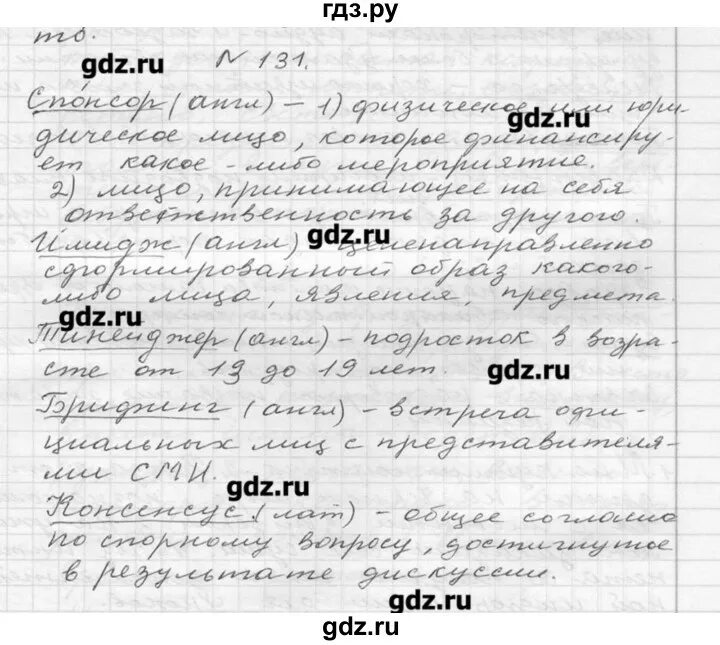 гдз.ру
то.
gdz.ru
№ 131.
Спо́нсор (англ) – 1) физическое или юри-
gdz.ru
дическое лицо, которое финансиру-
ет какое-либо мероприятие.
2) лицо, принимающее на себя
ответственность за другого.
Имидж (англ) целенаправленно
gdz.ru
сформированный образ какого-
либо лица, явления, предмета.
gdz.ru
Тинейджер (англ) – подросток в возра-
сте от 13 до 19 лет.
gdz.ru
Брифинг (англ) – встреча офи-
циальных лиц с представителя-
ми СМИ.
gdz.ru
Консенсус (лат) – общее согласие
по спорному вопросу, достигнутое
в результате дискуссии.
gdz.ru
gdz.ru